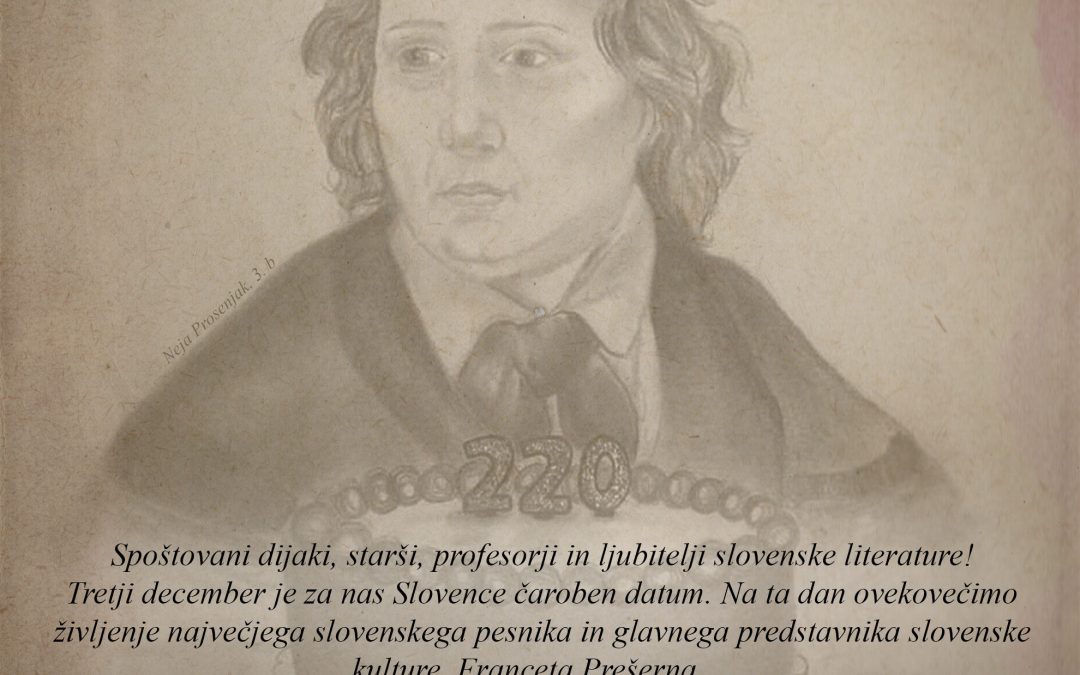 Neja Prosenjak, 3. b
220
Spoštovani dijaki, starši, profesorji in ljubitelji slovenske literature!
Tretji december je za nas Slovence čaroben datum. Na ta dan ovekovečimo
življenje največjega slovenskega pesnika in glavnega predstavnika slovenske
kulture, Franceta Prešerna.